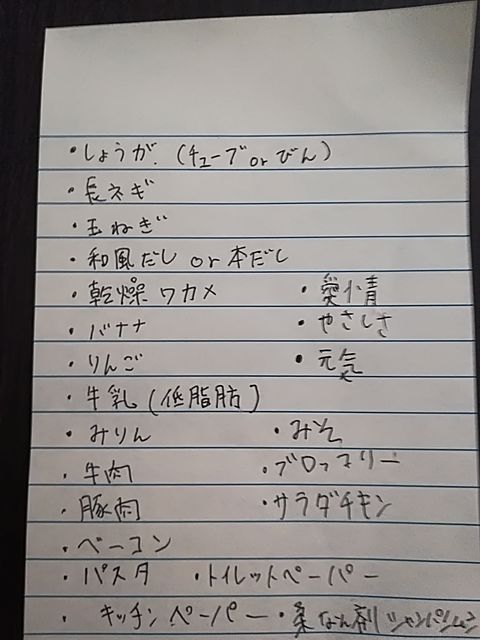 ・しょうが.(チューブorびん)
・長ネギ
・玉ねぎ
・和風だし or 本だし
・乾燥ワカメ ・愛情
・バナナ ・やさしさ
・りんご ・元気
・牛乳(低脂肪)
・みりん ・みそ
・牛肉 ・ブロッコリー
・豚肉 ・サラダチキン
・ベーコン
・パスタ ・トイレットペーパー
・キッチンペーパー ・柔なん剤